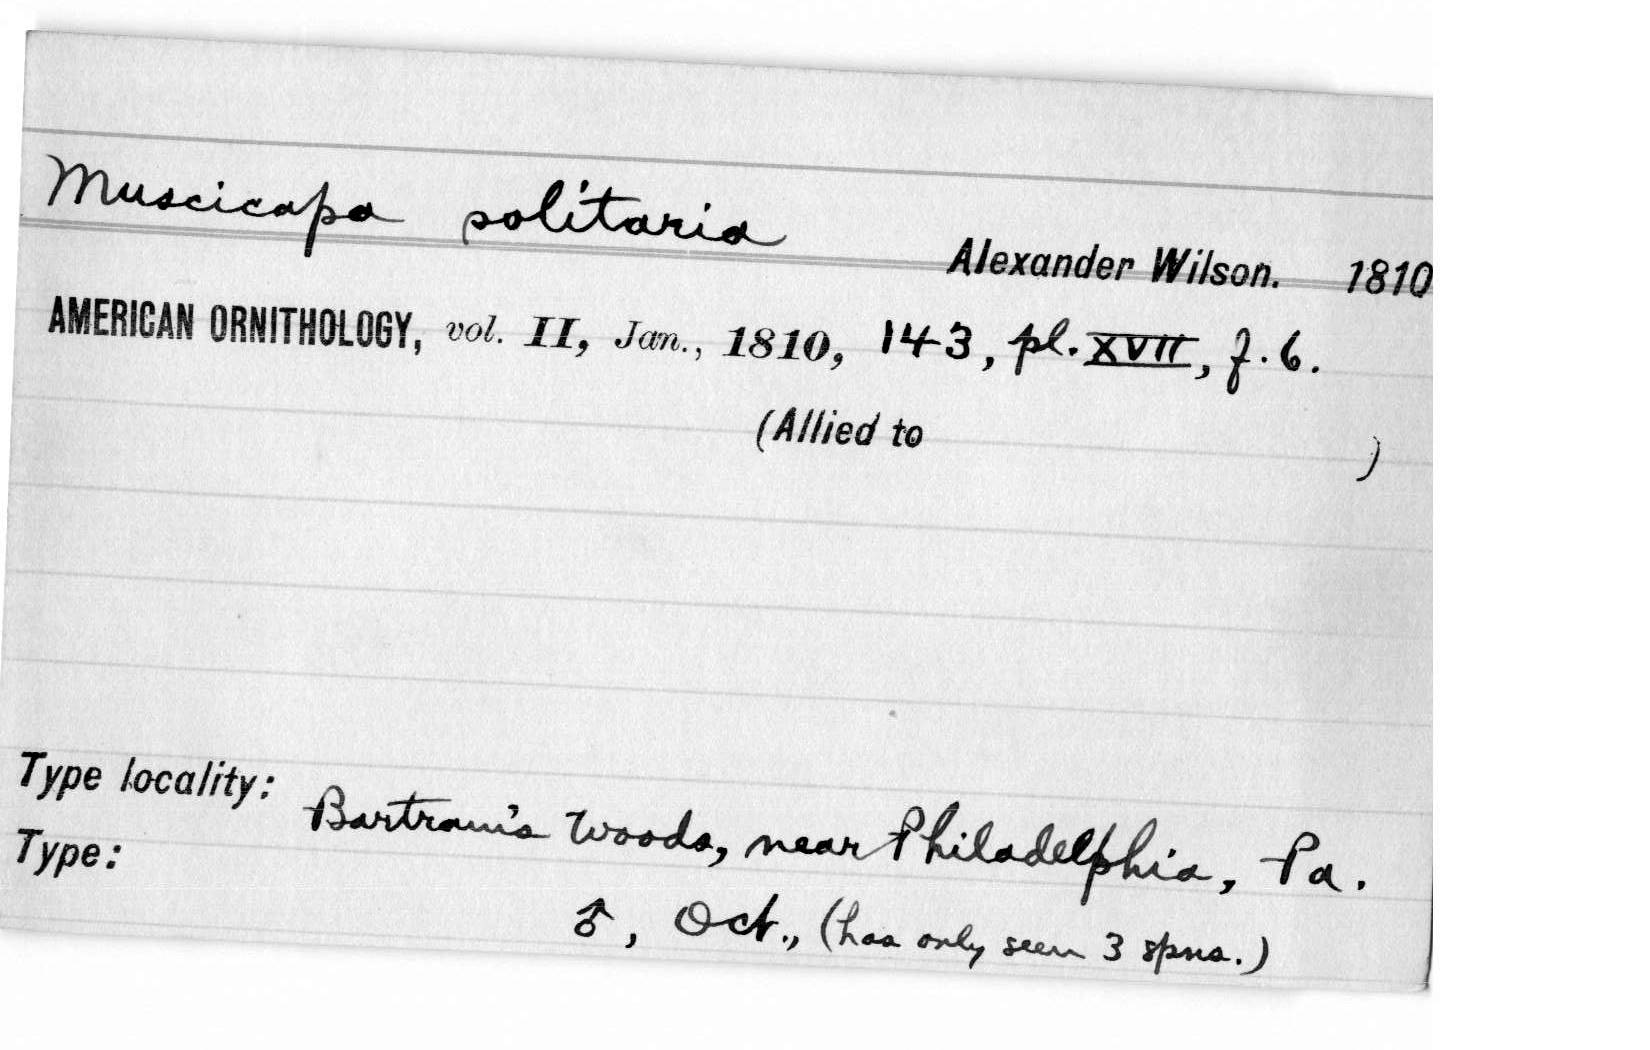 Muscicapa solitaria
Alexander Wilson. 1810
AMERICAN ORNITHOLOGY, vol. II, Jan., 1810, 143, pl. XVII, f. 6.
(Allied to )
Type locality: Bartram's woods, near Philadelphia, Pa.
Type:
♂, Oct., (has only seen 3 spns.)